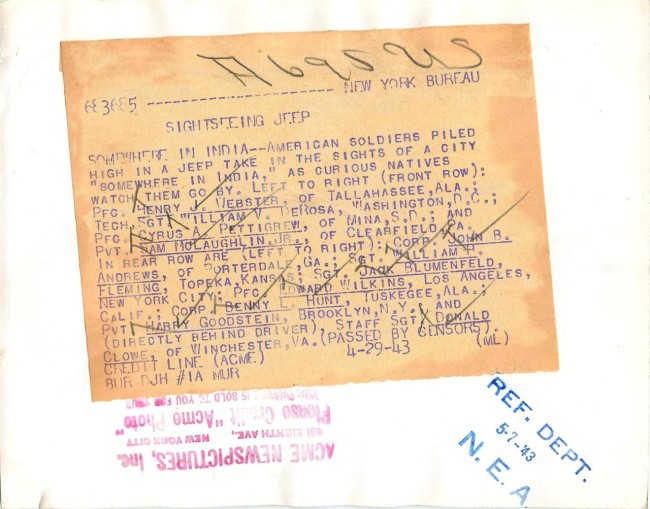 NEW YORK BUREAU
683685
SIGHTSEEING JEEP
SOMEWHERE IN INDIA--AMERICAN SOLDIERS PILED
HIGH IN A JEEP TAKE IN THE SIGHTS OF A CITY
"SOMEWHERE IN INDIA," AS CURIOUS NATIVES
WATCH THEM GO BY. LEFT TO RIGHT (FRONT ROW):
PFC. HENRY J. WEBSTER, OF TALLAHASSEE, ALA.;
TECH. SGT. WILLIAM V. DEROSA, WASHINGTON, D.C.;
PFC. CYRUS A. PETTIGREW, OF MINA, S.D.; AND
PVT. SAM MCLAUGHLIN, JR., OF CLEARFIELD, PA.
IN REAR ROW ARE (LEFT TO RIGHT): CORP. JOHN B.
ANDREWS, OF PORTERDALE, GA.; SGT. WILLIAM H.
FLEMING, TOPEKA, KANSAS; SGT. JACK BLUMENFELD,
NEW YORK CITY; PFC. EDWARD WILKINS, LOS ANGELES,
CALIF.; CORP. BENNY L. HUNT, TUSKEGEE, ALA.;
PVT. HARRY GOODSTEIN, BROOKLYN, N.Y.; AND
(DIRECTLY BEHIND DRIVER), STAFF SGT. DONALD
CLOWE, OF WINCHESTER, VA. (PASSED BY CENSORS).
CREDIT LINE (ACME) 4-29-43 (ML)
BUR DJH #1A MUR
ACME NEWSPICTURES, Inc.
461 EIGHTH AVE., NEW YORK CITY
Please Credit "Acme Photo"
IS SOLD TO YOU FOR YOUR
REF. DEPT.
5-7-43
N.E.A.